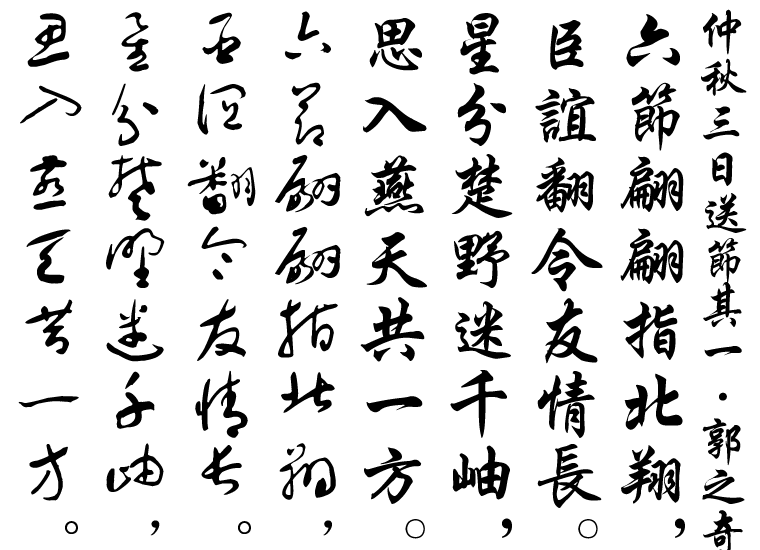 仲秋三日送節其一·郭之奇
六節翩翩指北翔，
臣誼翻令友情長。
星分楚野迷千岫，
思入燕天共一方。
六節翩翩指北翔，
臣誼翻令友情長。
星分楚野迷千岫，
思入燕天共一方。